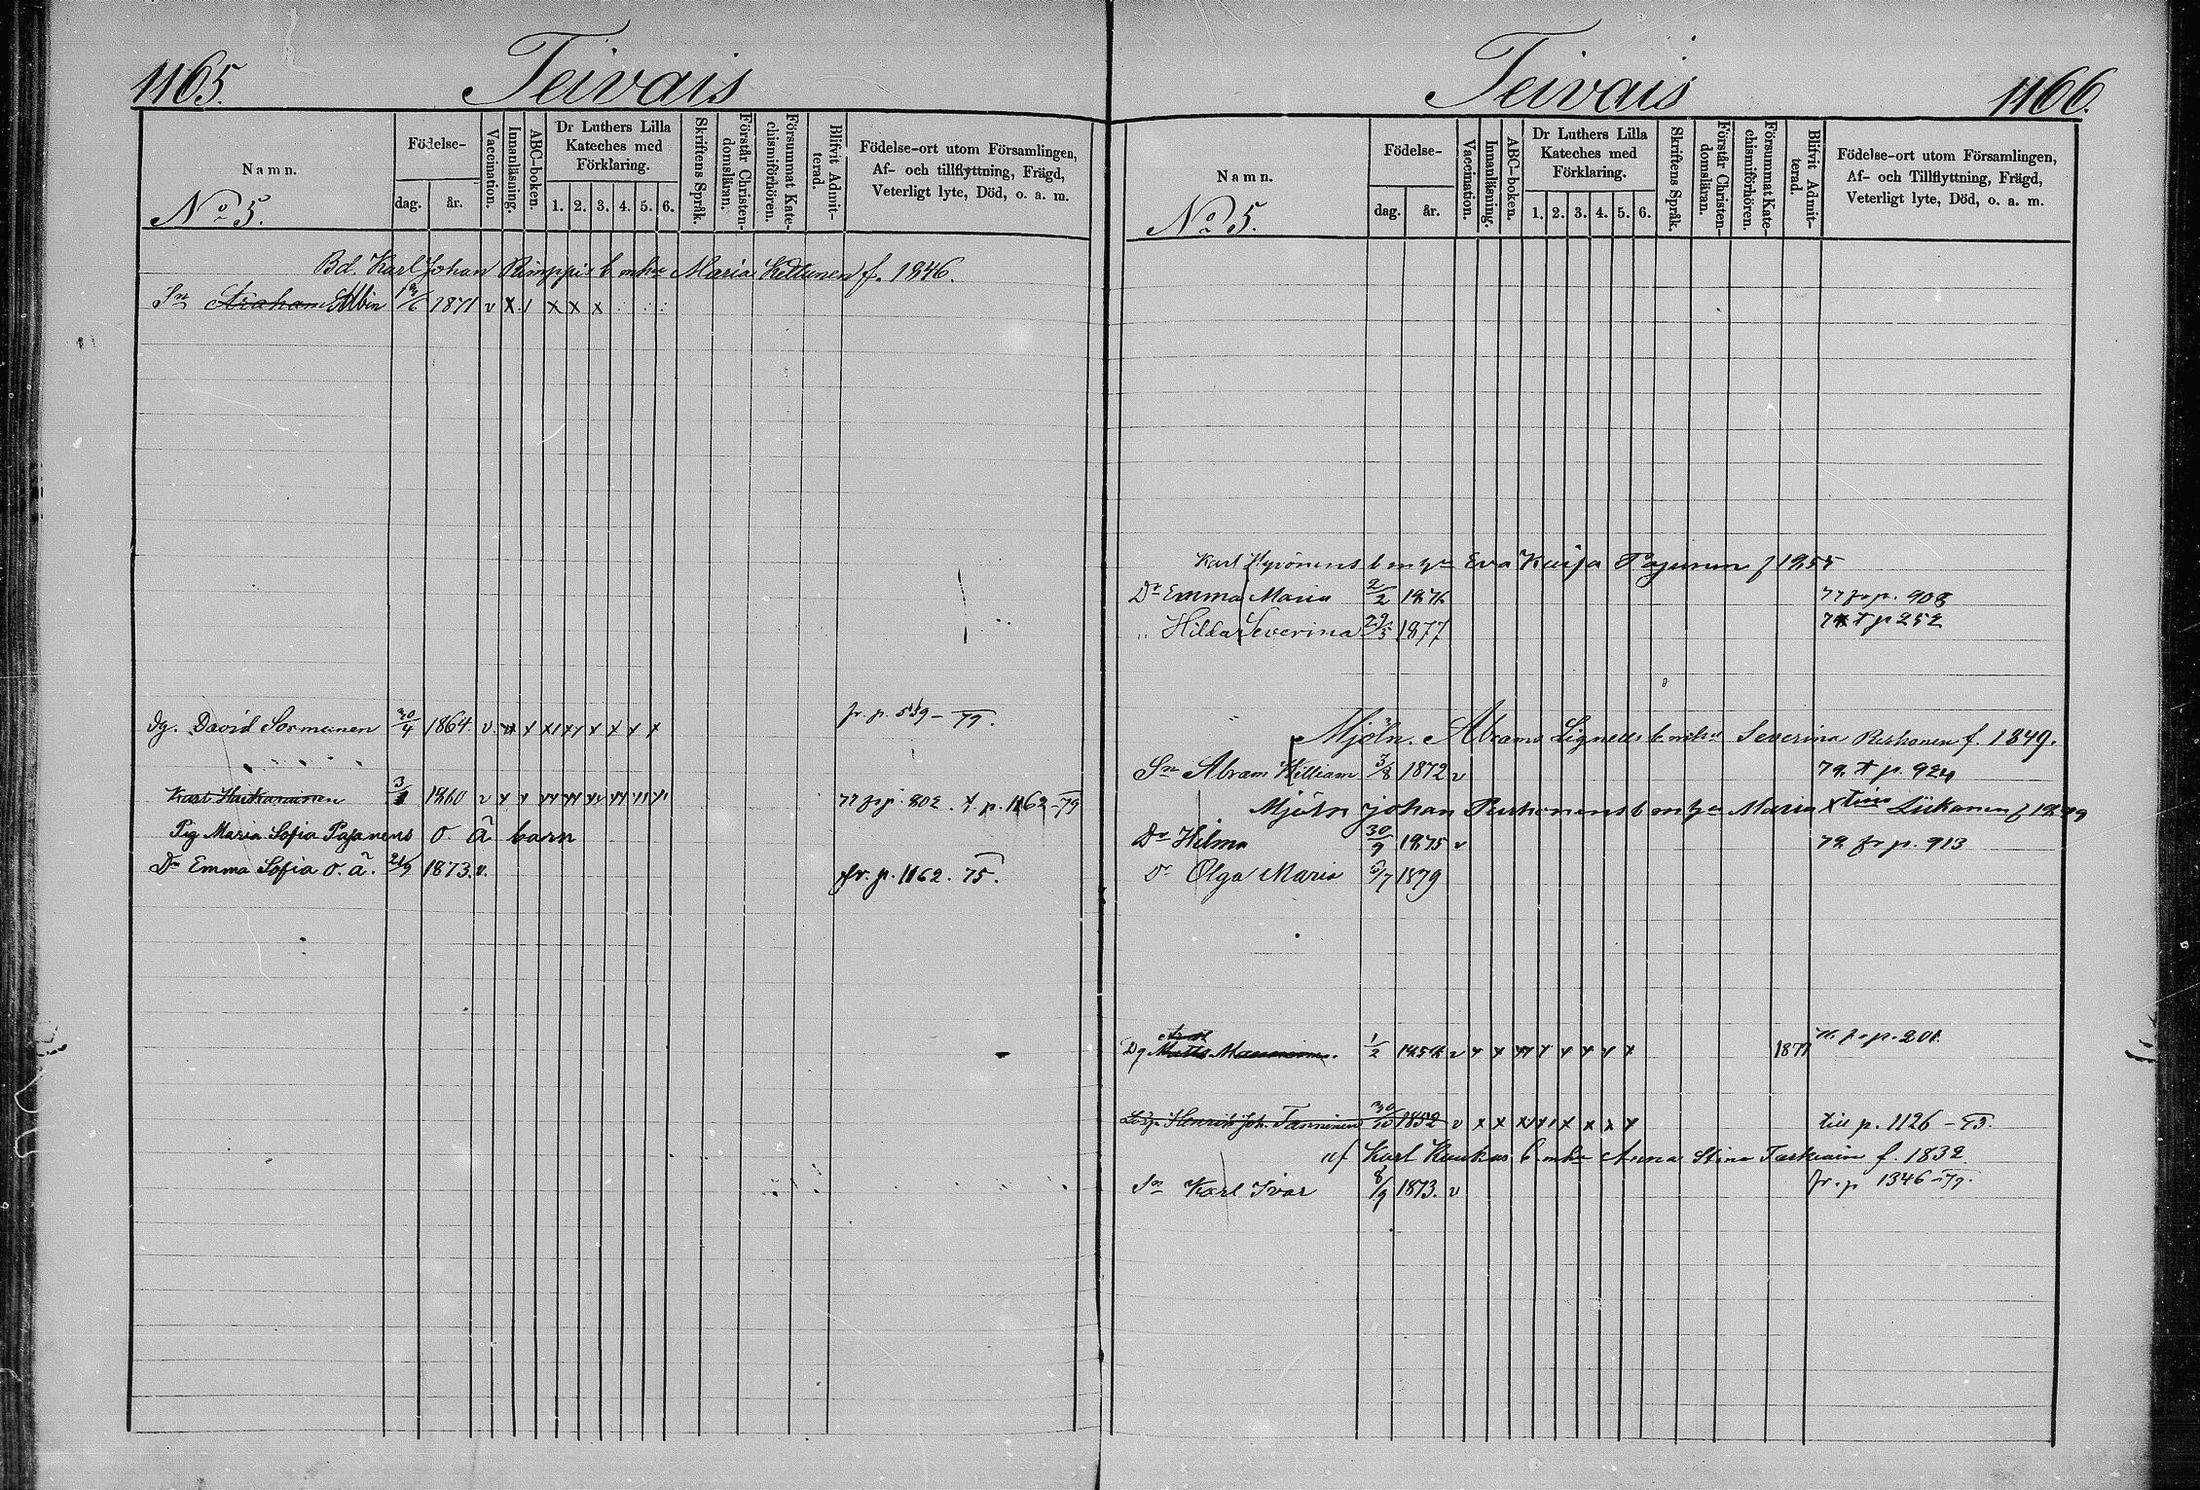 1165.
Teivais
Namn.
No 5.
Födelse-
dag.
år.
Vaccination.
Innanläsning.
ABC-boken.
Dr Luthers Lilla
Kateches med
Förklaring.
1. 2. 3. 4. 5. 6.
Skriftens Språk.
Förstår Christen-
domsläran.
Försummat Kate-
chismiförhören.
Blifvit Admit-
terad.
Födelse-ort utom Församlingen,
Af- och tillflyttning, Frägd,
Veterligt lyte, Död, o. a. m.
Bd. Karl Johan b. mhu Maria Kettunen f. 1846.
Sn Albin 1871 v x x x x
Dg. David Sormunen 30/4 1864. v. fr. p. 539 - 79.
Karl 1860 v 77 fr p. 802. t. p. 1162-79
Pig Maria Sofia Pajanens o. ä barn
Dr Emma Sofia o. ä. 21/9 1873. v. fr. p. 1162. 75.
Teivais
1166.
Namn.
No 5.
Födelse-
dag.
år.
Vaccination.
Innanläsning.
ABC-boken.
Dr Luthers Lilla
Kateches med
Förklaring.
1. 2. 3. 4. 5. 6.
Skriftens Språk.
Förstår Christen-
domsläran.
Försummat Kate-
chismiförhören.
Blifvit Admit-
terad.
Födelse-ort utom Församlingen,
Af- och Tillflyttning, Frägd,
Veterligt lyte, Död, o. a. m.
Karl Hyvönens b m hu Eva Kaisa Pajunen f 1855
Dr Emma Maria 2/2 1876 77 fr p. 908
" Hilda Severina 29/5 1877 t p 252
Mjöln. Abrams Lignells b. mhu Severina f. 1849.
Sn Abram William 3/8 1872 v 79. t p. 924
Mjöln Johan b m hu Maria Liikanen f 1849
Dr Hilma 30/9 1875 v 79 fr p. 913
Dr Olga Maria 6/7 1879
Dg Matts 1/2 v 1877 fr p. 201
Henrik Joh. Tanninen 30/10 1852 v till p. 1126 - 73.
af Karl Kaukas b. mhu Anna Stina f. 1832
Sn Karl Ivar 8/9 1873. v fr. p 1346-79.